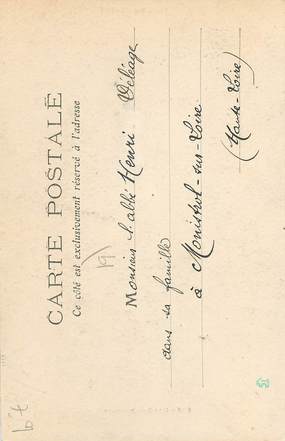 CARTE POSTALE
Ce côté est exclusivement réservé à l'adresse
19
Monsieur l'abbé Henri Véléage
dans sa famille
à Monistrol-sur-Loire
(Haute-Loire)